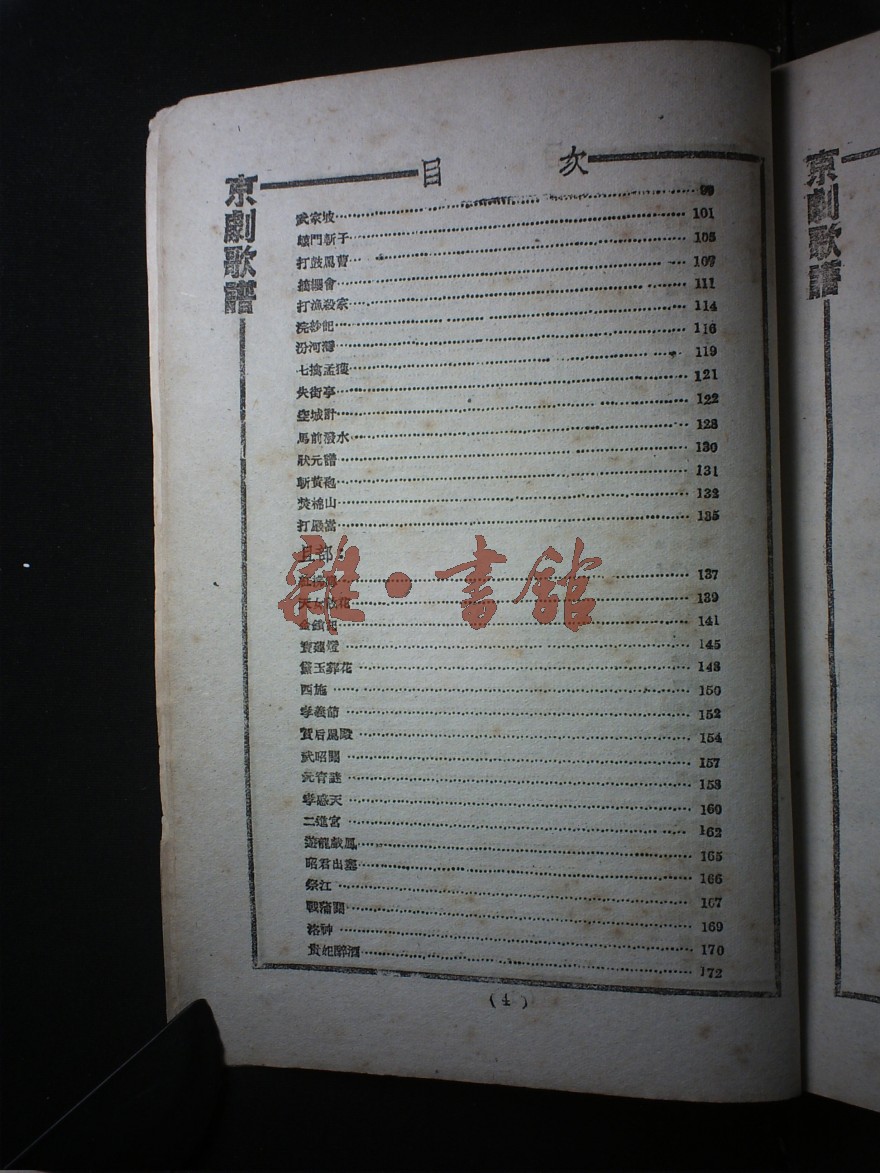 目次
京劇歌譜
武家坡 99
轅門斬子 101
打鼓罵曹 105
摘纓會 107
打漁殺家 111
浣紗記 114
汾河灣 116
七擒孟獲 119
失街亭 121
空城計 122
馬前潑水 128
狀元譜 130
斬黃袍 131
焚棉山 132
打嚴嵩 135
旦部：
紅拂傳 137
天女散花 139
金鎖記 141
寶蓮燈 145
黛玉葬花 148
西施 150
孝義節 152
賀后罵殿 154
武昭關 157
元宵謎 158
孝感天 160
二進宮 162
遊龍戲鳳 165
昭君出塞 166
祭江 167
戰蒲關 169
洛神 170
貴妃醉酒 172
(4)
雜·書館
京劇歌譜